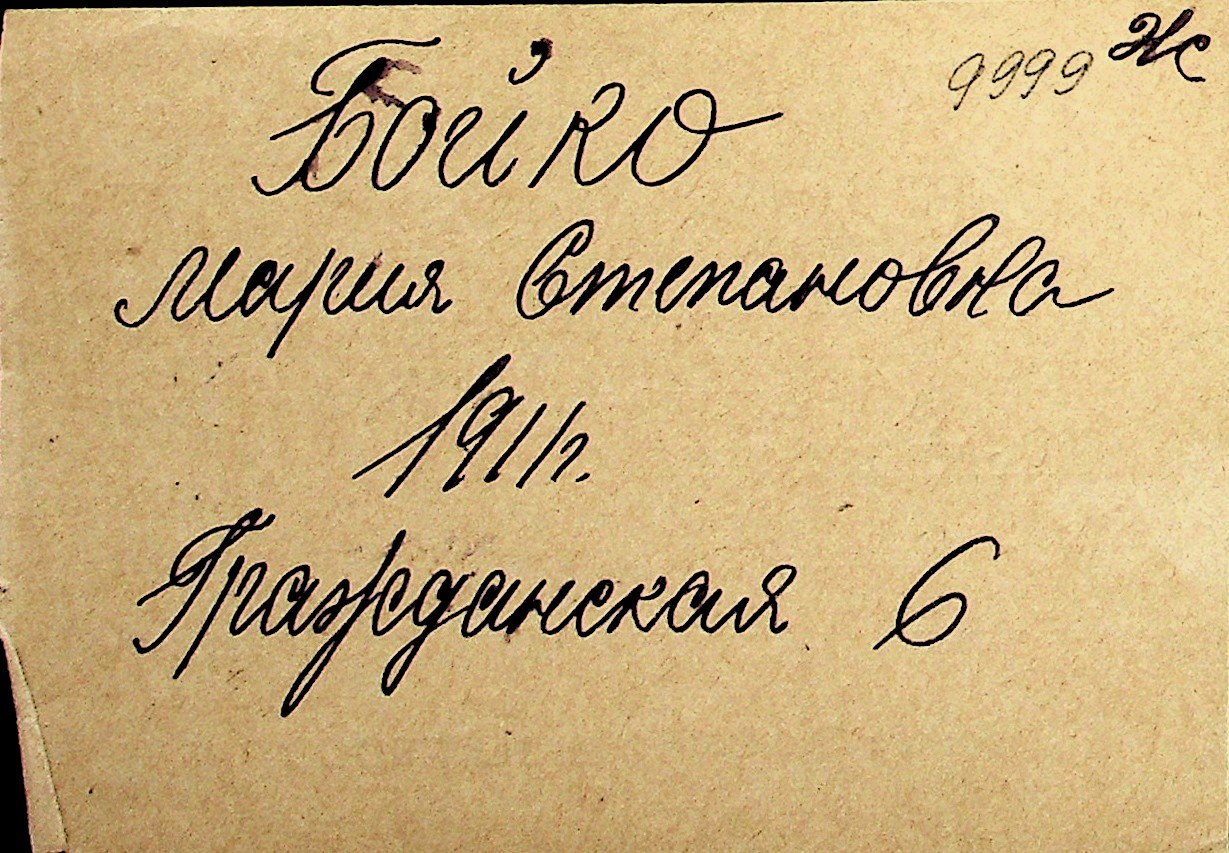 9999 Жс
Бойко
Мария Степановна
1911г.
Гражданская 6